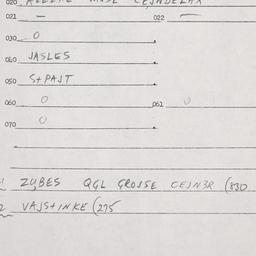 021 — 022 —
030 O
040 JASLES
050 S+PAJT
060 O 061 O
070 O
ZYBES QGL GROJSE CEJN3R (830
2 VAJS+INKE (275